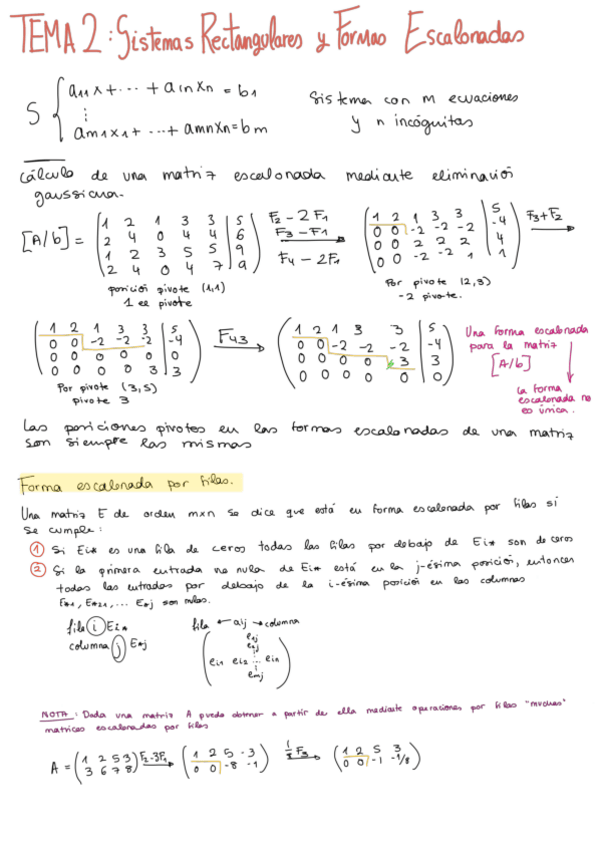 TEMA 2: Sistemas Rectangulares y Formas Escalonadas
S { a11x + ··· + a1nxn = b1
⋮
am1x1 + ··· + amnxn = bm
Sistema con m ecuaciones
y n incógnitas
cálculo de una matriz escalonada mediante eliminación
gaussiana.
[A/b] = ( 1 2 1 3 3 | 5
2 4 0 4 4 | 6
1 2 3 5 5 | 9
2 4 0 4 7 | 9 )
F2 - 2F1
F3 - F1
F4 - 2F1
( 1 2 1 3 3 | 5
0 0 -2 -2 -2 | -4
0 0 2 2 2 | 4
0 0 -2 -2 1 | 1 )
F3+F2
posición pivote (1,1)
1 es pivote
Por pivote (2,3)
-2 pivote.
( 1 2 1 3 3 | 5
0 0 -2 -2 -2 | -4
0 0 0 0 0 | 0
0 0 0 0 3 | 3 )
F43
( 1 2 1 3 3 | 5
0 0 -2 -2 -2 | -4
0 0 0 0 3 | 3
0 0 0 0 0 | 0 )
Una forma escalonada
para la matriz
[A/b]
La forma
escalonada no
es única.
Por pivote (3,5)
pivote 3
Las posiciones pivotes en las formas escalonadas de una matriz
son siempre las mismas
Forma escalonada por filas.
Una matriz E de orden mxn se dice que está en forma escalonada por filas si
se cumple:
① Si Ei* es una fila de ceros todas las filas por debajo de Ei* son de ceros
② Si la primera entrada no nula de Ei* está en la j-ésima posición, entonces
todas las entradas por debajo de la i-ésima posición en las columnas
E*1, E*2, ... E*j son nulas.
fila i Ei*
columna j E*j
fila ← aij → columna
( e1j
e2j
ei1 ei2 ··· ein
emj )
NOTA: Dada una matriz A puedo obtener a partir de ella mediante operaciones por filas "muchas"
matrices escalonadas por filas
A = ( 1 2 5 3
3 6 7 8 )
F2-3F1
( 1 2 5 -3
0 0 -8 -1 )
( 1 2 5 3
0 0 -1 -1/8 )